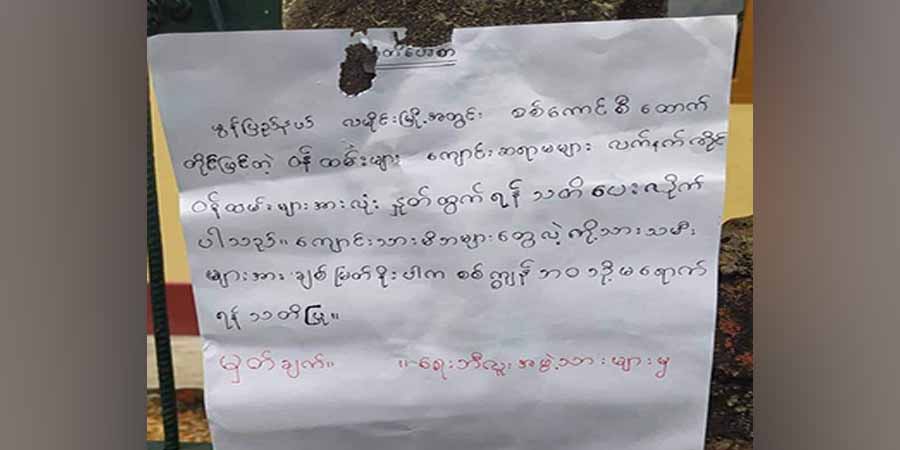 သတိပေးစာ
မွန်ပြည်နယ် လမိုင်းမြို့အတွင်း စစ်ကောင်စီ ထောက်
တိုင်ဖြစ်တဲ့ ဝန်ထမ်းများ ကျောင်းဆရာမများ လက်နက်ကိုင်
ဝန်ထမ်းများအားလုံး နှုတ်ထွက်ရန် သတိပေးလိုက်
ပါသည်။ ကျောင်းသားမိဘများတွေလဲ့ ကိုယ့်သားသမီး
များအား ချစ်မြတ်နိုးပါက စစ်ကျွန်ဘဝသို့မရောက်
ရန် သတိပြု။
မှတ်ချက်။ ။ရေးဘီလူးအဖွဲ့သားများမှ